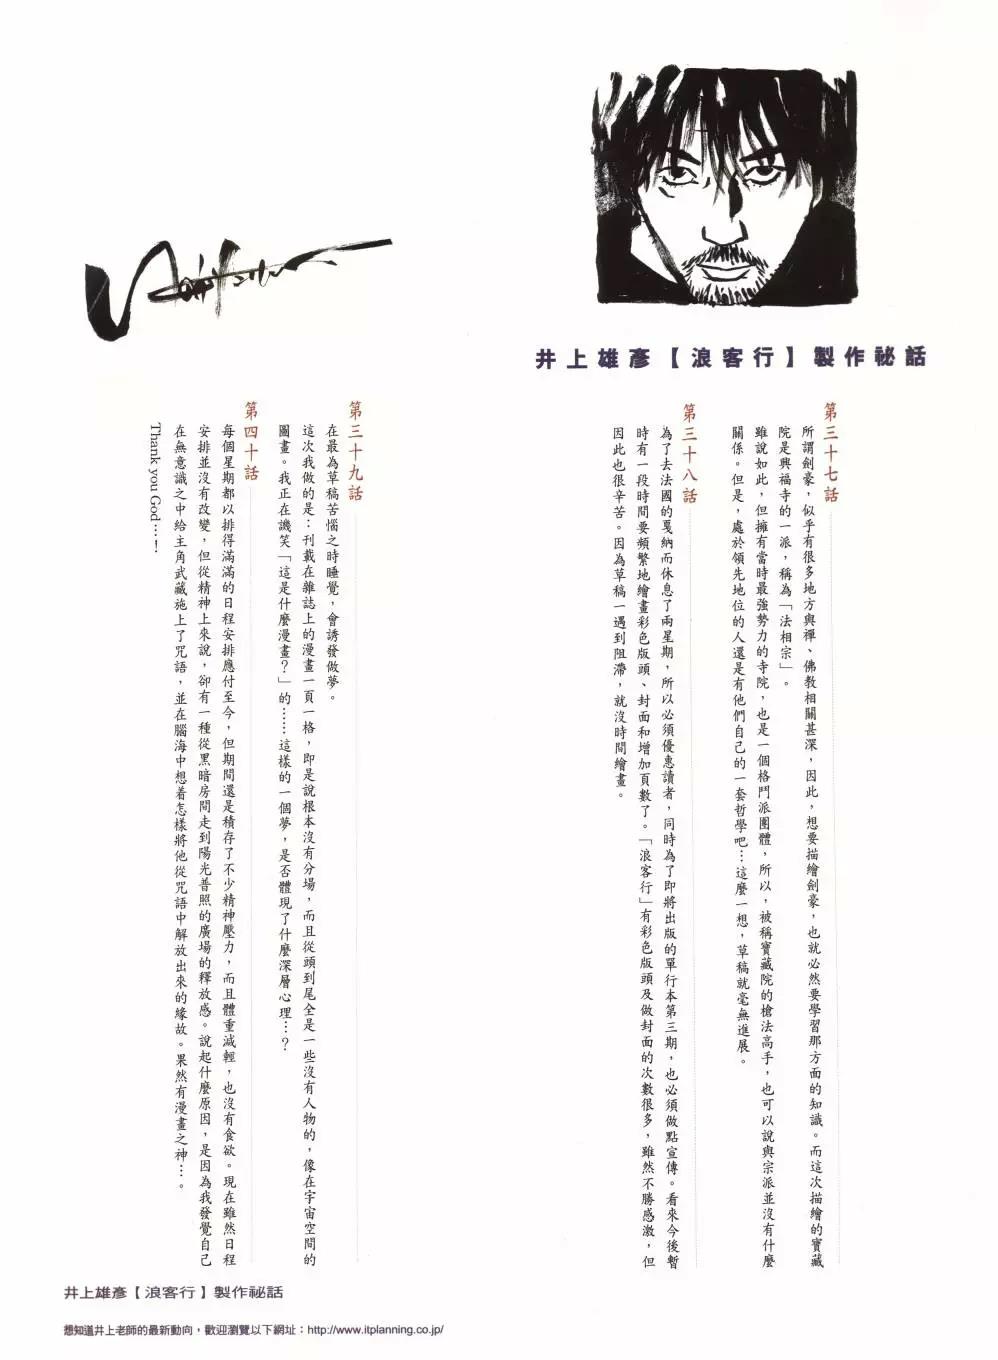 井上雄彥【浪客行】製作祕話
第三十七話
所謂劍豪，似乎有很多地方與禪、佛教相關甚深，因此，想要描繪劍豪，也就必然要學習那方面的知識。而這次描繪的寶藏
院是興福寺的一派，稱為「法相宗」。
雖說如此，但擁有當時最強勢力的寺院，也是一個格鬥派團體，所以，被稱寶藏院的槍法高手，也可以說與宗派並沒有什麼
關係。但是，處於領先地位的人還是有他們自己的一套哲學吧…這麼一想，草稿就毫無進展。
第三十八話
為了去法國的戛納而休息了兩星期，所以必須優惠讀者，同時為了即將出版的單行本第三期，也必須做點宣傳。看來今後暫
時有一段時間要頻繁地繪畫彩色版頭、封面和增加頁數了。「浪客行」有彩色版頭及做封面的次數很多，雖然不勝感激，但
因此也很辛苦。因為草稿一遇到阻滯，就沒時間繪畫。
第三十九話
在最為草稿苦惱之時睡覺，會誘發做夢。
這次我做的是：刊載在雜誌上的漫畫一頁一格，即是說根本沒有分場，而且從頭到尾全是一些沒有人物的，像在宇宙空間的
圖畫。我正在譏笑「這是什麼漫畫？」的……這樣的一個夢，是否體現了什麼深層心理…？
第四十話
每個星期都以排得滿滿的日程安排應付至今，但期間還是積存了不少精神壓力，而且體重減輕，也沒有食欲。現在雖然日程
安排並沒有改變，但從精神上來說，卻有一種從黑暗房間走到陽光普照的廣場的釋放感。說起什麼原因，是因為我發覺自己
在無意識之中給主角武藏施上了咒語，並在腦海中想着怎樣將他從咒語中解放出來的緣故。果然有漫畫之神…。
Thank you God…！
井上雄彥【浪客行】製作祕話
想知道井上老師的最新動向，歡迎瀏覽以下網址：http://www.itplanning.co.jp/